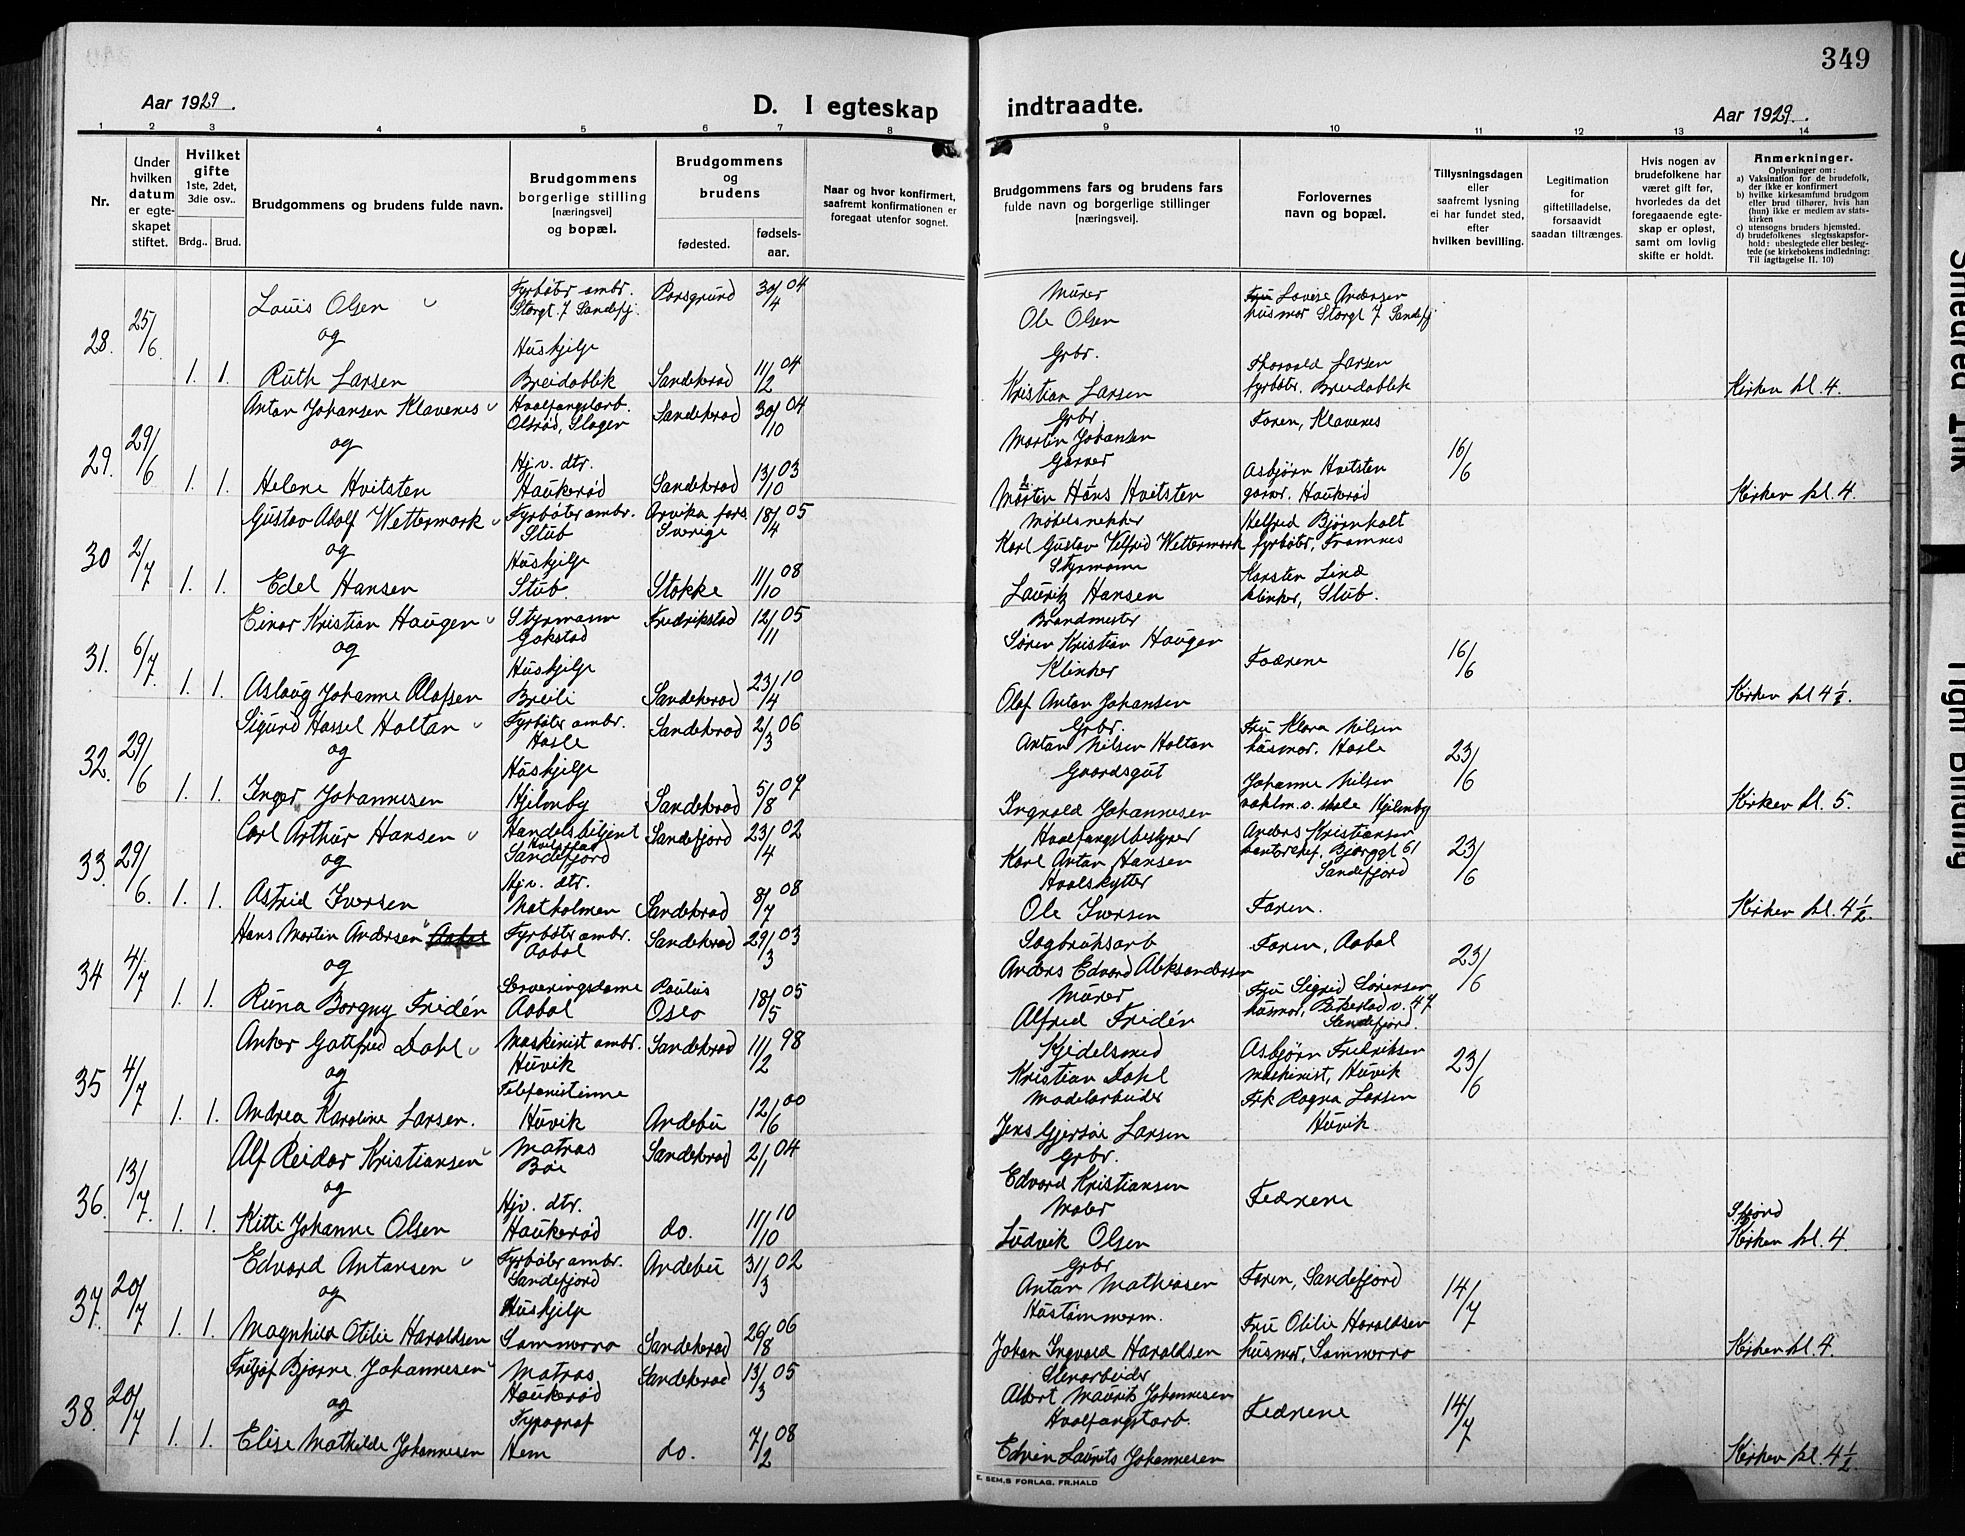 349
Aar 1929.
D. I egteskap
indtraadte.
Aar 1929.
1 2 3 4 5 6 7 8
9 10 11 12 13 14
Nr.
Under
hvilken
datum
er egte-
skapet
stiftet.
Hvilket
gifte
1ste, 2det,
3die osv..
Brdg.. Brud.
Brudgommens og brudens fulde navn.
Brudgommens
borgerlige stilling
[næringsvei]
og bopæl.
Brudgommens
og
brudens
fødested.
fødsels-
aar.
Naar og hvor konfirmert,
saafremt konfirmationen er
foregaat utenfor sognet.
Brudgommens fars og brudens fars
fulde navn og borgerlige stillinger
[næringsvei].
Forlovernes
navn og bopæl.
Tillysningsdagen
eller
saafremt lysning
ei har fundet sted,
efter
hvilken bevilling.
Legitimation
for
giftetilladelse,
forsaavidt
saadan tiltrænges.
Hvis nogen av
brudefolkene har
været gift før,
hvorledes da det
foregaaende egte-
skap er opløst,
samt om lovlig
skifte er holdt.
Anmerkninger.
Oplysninger om:
a) Vaksination for de brudefolk,
der ikke er konfirmert
b) hvilke kirkesamfund brudgom
eller brud tilhører, hvis han
(hun) ikke er medlem av stats-
kirken
c) utensogns bruders hjemsted.
d) brudefolkenes slegtsskapsfor-
hold : ubeslegtede eller besleg-
tede (se kirkebokens indledning:
Til iagttagelse II. 10)
28. 25/6 Louis Olsen Fyrbøter ambr. Storgt 7 Sandefj. Porsgrund 30/4 04 Murer Ole Olsen Fru Lovise Andersen husmor Storgt 7 Sandefj
og
1. 1. Ruth Larsen Hushjelp Breidablik Sandeherad 11/2 04 Grbr. Kristian Larsen Thorvald Larsen fyrbøter, Breidablik Kirken kl. 4.
29. 29/6 Anton Johansen Klavenes Hvalfangstarb. Olsrød, Slagen Sandeherad 30/10 04 Grbr. Martin Johansen Faren, Klavenes 16/6
og
1. 1. Helene Hvitsten Hj.v. dtr. Haukerød Sandeherad 13/10 03 Garver Martin Hans Hvitsten Asbjørn Hvitsten garver, Haukerød Kirken kl. 4.
30 2/7 Gustav Adolf Wettermark Fyrbøter ambr. Stub Arvika fors. Sverige 18/4 05 Møbelsnekker Karl Gustav Vilfrid Wettermark Helfred Bjørnholt fyrbøter, Framnes
og
1. 1. Edel Hansen Hushjelp Stub Stokke 11/10 08 Styrmann Lauritz Hansen Karsten Lind klinker, Stub.
31. 6/7 Einar Kristian Haugen Styrmann Gokstad Fredrikstad 12/11 05 Brandmester Søren Kristian Haugen Fædrene 16/6
og
1. 1. Aslaug Johanne Olafsen Hushjelp Breili Sandeherad 23/4 10 Klinker Olaf Anton Johansen Kirken kl 4½.
32. 29/6 Sigurd Hassel Holtan Fyrbøter ambr. Hasle Sandeherad 2/3 06 Grbr. Anton Nilsen Holtan Fru Klara Nilsen husmor. Hasle 23/6
og
1. 1. Inger Johannesen Hushjelp Hjelmby Sandeherad 5/8 07 Gaardsgut Ingvald Johannesen Johanne Nilsen vaktm. v. skole Hjelmby Kirken kl. 5.
33. 29/6 Carl Arthur Hansen Handelsbetjent Sandefjord Sandefjord 23/4 02 Hvalfangstbestyrer Karl Anton Hansen Anders Kristiansen kontorchef, Bjerggt 61 Sandefjord 23/6
og
1. 1. Astrid Iversen Hj.v. dtr. Natholmen Sandeherad 8/7 08 Hvalskytter Ole Iversen Faren. Kirken kl. 4½.
34 4/7 Hans Martin Andersen Aabol Fyrbøter ambr. Aabol Sandeherad 29/3 03 Sagbruksarb Anders Edvard Aleksandersen Faren, Aabol 23/6
og
1. 1. Runa Borgny Fridén Serveringsdame Aabol Paulus Oslo 18/5 05 Murer Alfred Fridén Fru Sigrid Sørensen husmor, Pukestad v. 47 Sandefjord.
35 4/7 Anker Gottfred Dahl Maskinist ambr. Huvik Sandeherad 11/2 98 Kjedelsmed Kristian Dahl Asbjørn Fredriksen maskinist, Huvik 23/6
og
1. 1. Andrea Karoline Larsen. Telefonistinne Huvik Andebu 12/6 00 Modelarbeider Jens Gjersøe Larsen Frk Ragna Larsen Huvik.
36. 13/7. Alf Reidar Kristiansen Matros Bøe Sandeherad 2/1 04 Grbr. Edvard Kristiansen Fedrene
og
1. 1. Kitti Johanne Olsen Hj.v. dtr. Haukerød do. 11/10 10 Maler Ludvik Olsen Kirken kl. 4.
37. 20/7 Edvard Antonsen Fyrbøter ambr. Sandefjord Andebu 31/3 02 Grbr Anton Mathiasen Faren, Sandefjord 14/7
og
1. 1. Magnhild Otilie Haraldsen Hushjelp Sommerro Sandeherad 26/8 06 Hustømmerm. Johan Ingvald Haraldsen Fru Otilie Haraldsen husmor, Sommerro Kirken kl. 4.
38. 20/7 Fritjof Bjarne Johannesen Matros Haukerød Sandeherad 13/3 05 Stenarbeider Albert Mauritz Johannesen Fedrene 14/7
og
1. 1. Elise Mathilde Johannesen Typograf Hem do. 7/2 08 Hvalfangstarb. Edvin Laurits Johannesen Kirken kl. 4½.
E. SEM.S FORLAG. FR.HALD
Smedred Irik
Tight Binding